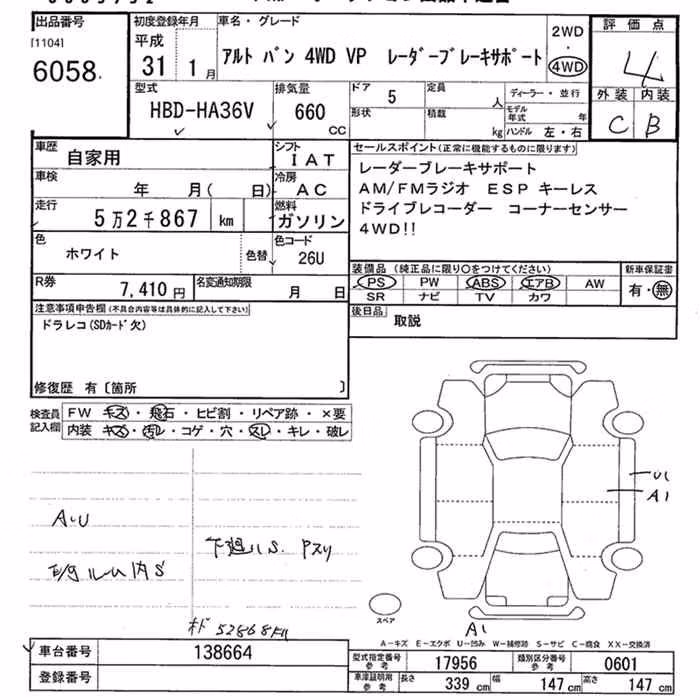 出品番号
[1104]
6058
初度登録年月
平成
31 1月
車名・グレード
アルト バン 4WD VP レーダーブレーキサポート
2WD
・
4WD
評価点
4
外装 内装
C B
型式
HBD-HA36V
排気量
660
CC
ドア 5
形状
定員 人
積載 kg
ディーラー・並行
モデル年式 年
ハンドル 左・右
車歴 自家用
シフト IAT
車検 年 月( 日)
冷房 AC
走行 5万2千867 km
燃料 ガソリン
色 ホワイト 色替
色コード 26U
R券 7,410円
名変通知期限 月 日
セールスポイント(正常に機能するものに限ります)
レーダーブレーキサポート
AM/FMラジオ ESP キーレス
ドライブレコーダー コーナーセンサー
4WD!!
装備品 (純正品に限り○をつけてください)
PS PW ABS エアB AW
SR ナビ TV カワ
新車保証書
有・無
後日品 取説
注意事項申告欄(不具合内容等は具体的に記入して下さい)
ドラレコ(SDカード欠)
修復歴 有〔箇所 〕
検査員記入欄
FW キズ・飛石・ヒビ割・リペア跡・×要
内装 キズ・汚レ・コゲ・穴・スレ・キレ・破レ
A・U
E/gルーム内S
下廻りS. Pスリ
52868
U1
A1
A1
スペア
A-キズ E-エクボ U-凹み W-補修跡 S-サビ C-腐食 XX-交換済
車台番号 138664
登録番号
型式指定番号 参考 17956
類別区分番号 参考 0601
車庫証明用 参考 長さ 339 cm 幅 147 cm 高さ 147 cm